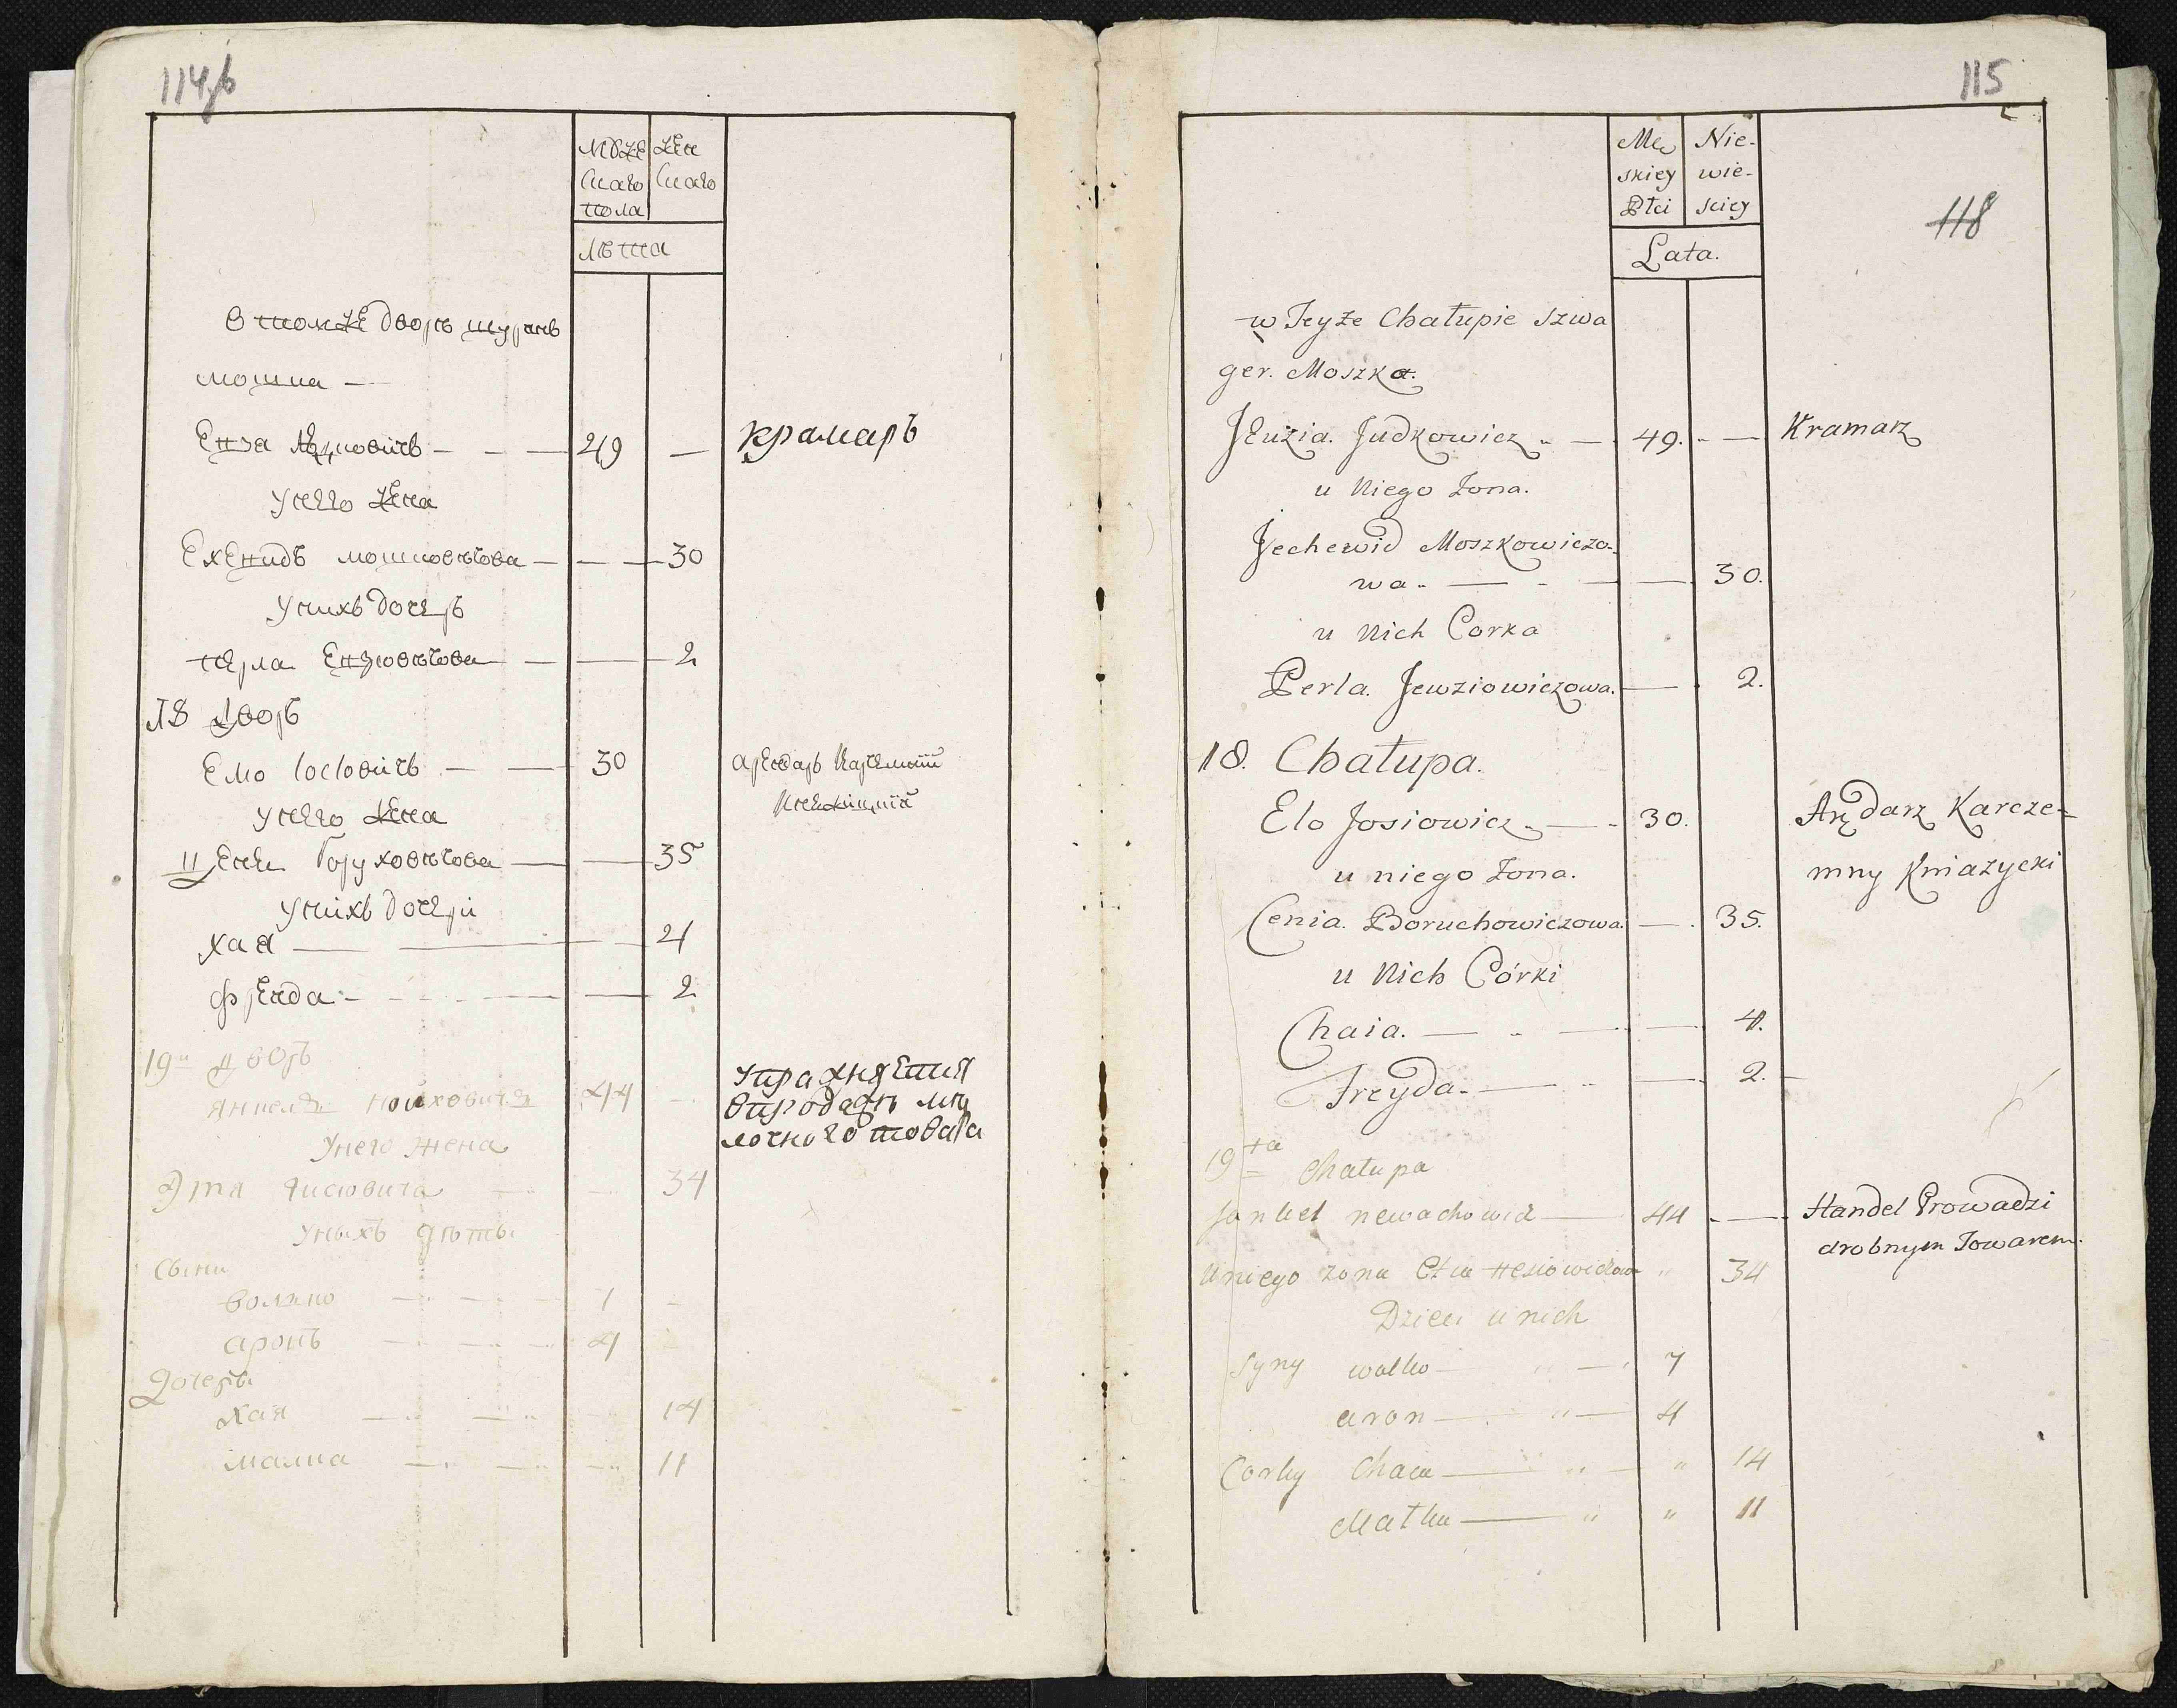 114б
Муже
скаго
пола
Жен
скаго
Лѣта
В томже дворѣ шуринъ
мошка —
Евза Юдковичъ — 29 — крамарь
у него жена
Ехевидъ мошковичова — 30
у нихъ дочерь
перла Евзовичова — 2
18 Дворъ
Ело Іосіовичъ — 30 арендарь карчемный
княжицкій
у него жена
Ценя Боруховичова — 35
у нихъ дочери
хая — 4
фрейда — 2
19й дворъ
янкель 44 упражняется
в продажѣ мѣ
лочного товара
у него жена
Этя 34
у ныхъ дѣты
сыны
волько 7
аронъ 4
дочерѣ
хая 14
малка 11
115
118
Mę
skiey
Płci
Nie-
wie-
sciey
Lata.
w Teyże Chałupie szwa
ger. Moszka.
Jeuzia. Judkowicz — 49. — Kramarz
u Niego Żona.
Jechewid Moszkowiczo-
wa. — 30.
u Nich Corka
Perla. Jewziowiczowa. — 2.
18. Chałupa.
Elo Josiowicz — 30. Arędarz Karcze=
mny Kniażycki
u niego Żona.
Cenia. Boruchowiczowa. — 35.
u Nich Córki
Chaia. — 4.
Freyda. — 2.
19ta Chałupa
Jankel — 44 — Handel Prowadzi
drobnym Towarem.
u niego żona Etia " 34
Dzieci u nich
Syny wolko — 7
aron — 4
Corky Chaia — " 14
Malka — " 11